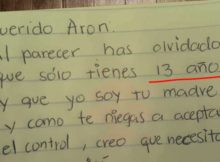 uerido Aron.
l parecer has olvidado
que sólo tienes 13 año
y que yo soy tu madre
y como te niegas a acepta
el control, creo que necesito